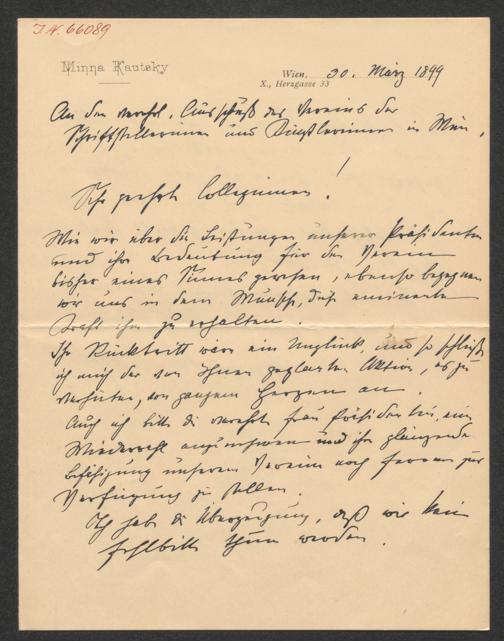 J.N. 66089
Minna Kautsky
Wien, 30. März 1899
X., Herzgasse 33
An den verehrl. Ausschuß des Vereins der
Schriftstellerinnen und Künstlerinnen in Wien.
Sehr geehrte Colleginnen!
Wie wir über die Leistungen unserer Präsidentin
und ihre Bedeutung für den Verein
bisher eines Sinnes gewesen, ebenso begegnen
wir uns in dem Wunsche, diese eminente
Kraft ihm zu erhalten.
Ihr Rücktritt wäre ein Unglück, und so schließe
ich mich der von Ihnen geplanten Aktion, es zu
verhüten, von ganzem Herzen an.
Auch ich bitte die verehrte Frau Präsidentin, eine
Wiederwahl anzunehmen und ihre glänzende
Befähigung unserem Vereine noch ferner zur
Verfügung zu stellen.
Ich habe die Überzeugung, daß wir keine
Fehlbitte thun werden.